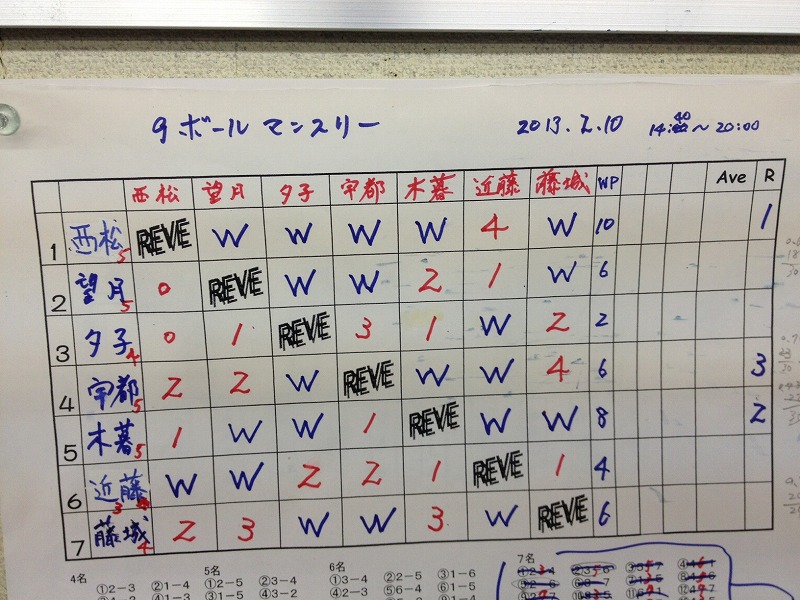 9ボールマンスリー 2013.2.10 14:40～20:00
西松 望月 夕子 宇都 木暮 近藤 藤城 WP Ave R
1 西松5 REVE W W W W 4 W 10 1
2 望月5 0 REVE W W 2 1 W 6
3 夕子4 0 1 REVE 3 1 W 2 2
4 宇都5 2 2 W REVE W W 4 6 3
5 木暮5 1 W W 1 REVE W W 8 2
6 近藤3 W W 2 2 1 REVE 1 4
7 藤城4 2 3 W W 3 W REVE 6
4名 5名 6名 7名
①2－3 ②1－4 ①2－5 ②3－4 ①3－4 ②2－5 ③1－6